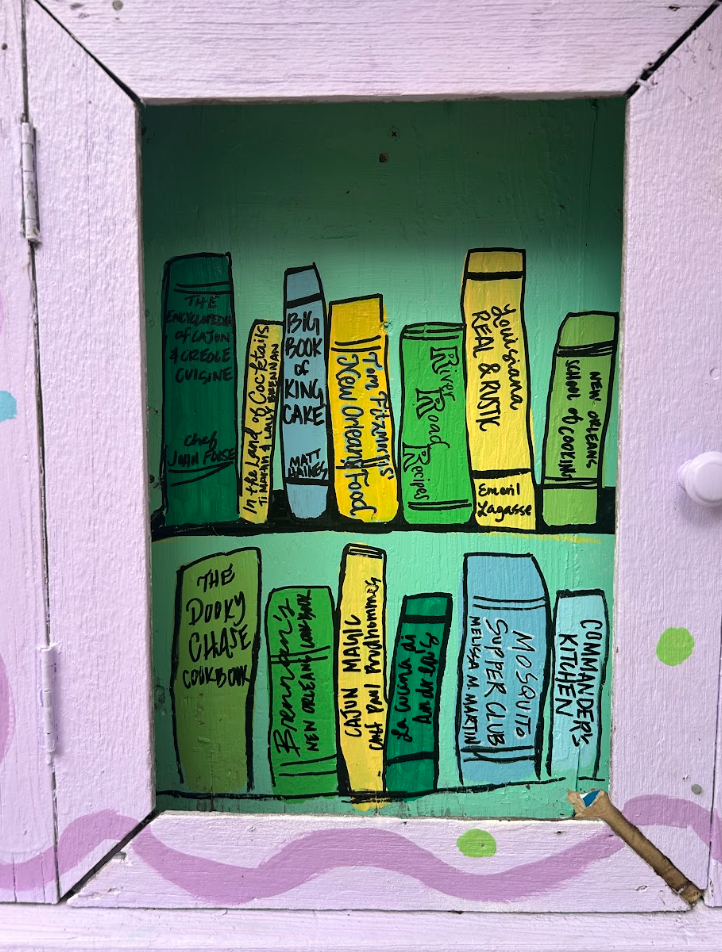 THE
ENCYCLOPEDIA
of CAJUN
& CREOLE
CUISINE
Chef
JOHN FOLSE
In the Land of Cocktails
TI MARTIN & LALLY BRENNAN
BIG
BOOK
of
KING
CAKE
MATT
HAINES
Tom Fitzmorris'
New Orleans Food
River Road Recipes
Louisiana
REAL & RUSTIC
Emeril
Lagasse
NEW ORLEANS
SCHOOL of COOKING
THE
DOOKY
CHASE
COOKBOOK
Brennan's
NEW ORLEANS COOKBOOK
CAJUN MAGIC
Chef Paul Prudhommes
La Cucina di
Andrea's
MOSQUITO
SUPPER CLUB
MELISSA M. MARTIN
COMMANDER'S
KITCHEN